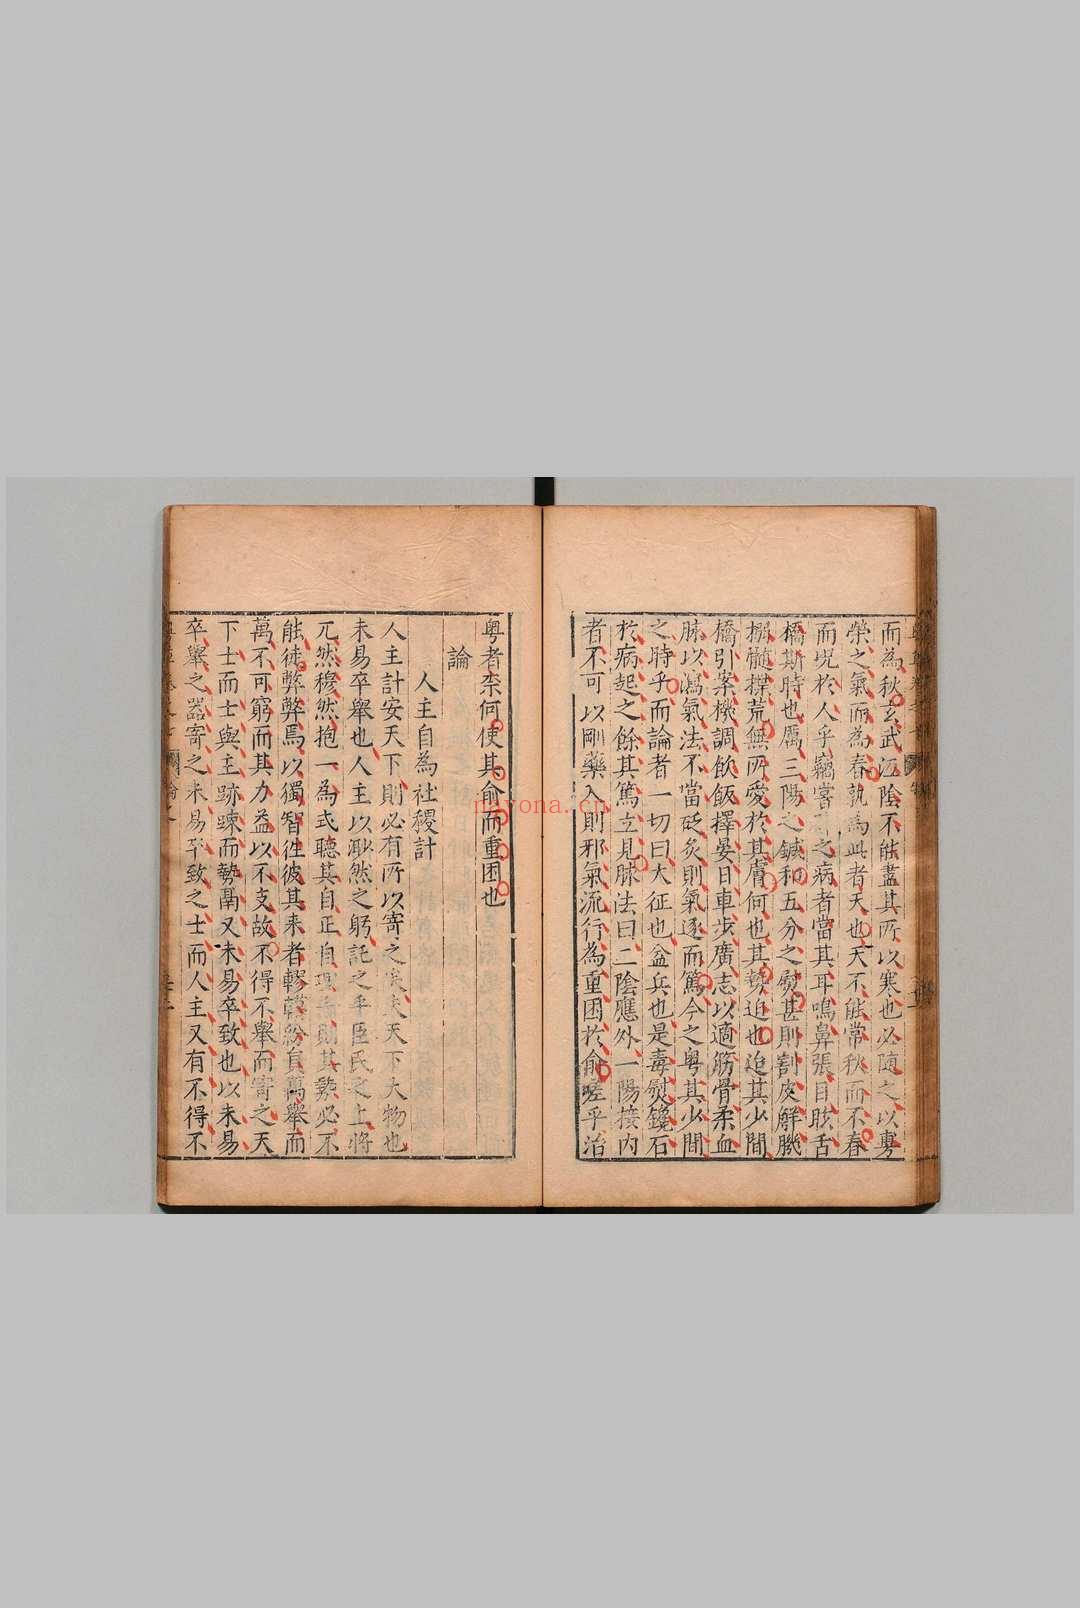 而為秋玄武沍陰不能盡其所以寒也必随之以旉
榮之氣而為春孰為此者天也天不能常秋而不春
而况於人乎竊嘗之病者當其耳鳴鼻張目眩舌
橋斯時也厲三陽之鍼和五分之熨甚則割皮觧肌
搦髓揲荒無所愛於其膚何也其勢迫也迨其少間
橋引案杌調飲飯擇晏日車步廣志以適筋骨柔血
脉以瀉氣法不當砭灸則氣逐而篤今之粤其少間
之時乎而論者一切曰大征也益兵也是毒熨鑱石
於病起之餘其篤立見脉法曰二陰應外一陽接内
者不可以剛藥入則邪氣流行為重困於俞嗟乎治
粤者柰何使其俞而重困也
論
人主自為社稷計
人主計安天下則必有所以寄之天下大物也
未易卒舉也人主以渺然之躬託之乎臣民之上將
兀然穆然抱一為式聽其自正自則其勢必不
能徒弊弊焉以獨智徃彼其来者轇轕紛員萬舉而
萬不可窮而其力益以不支故不得不舉而寄之天
下士而士與主跡踈而勢鬲又未易卒致也以未易
卒舉之器寄之未易卒致之士而人主又有不得不
nayona.cn